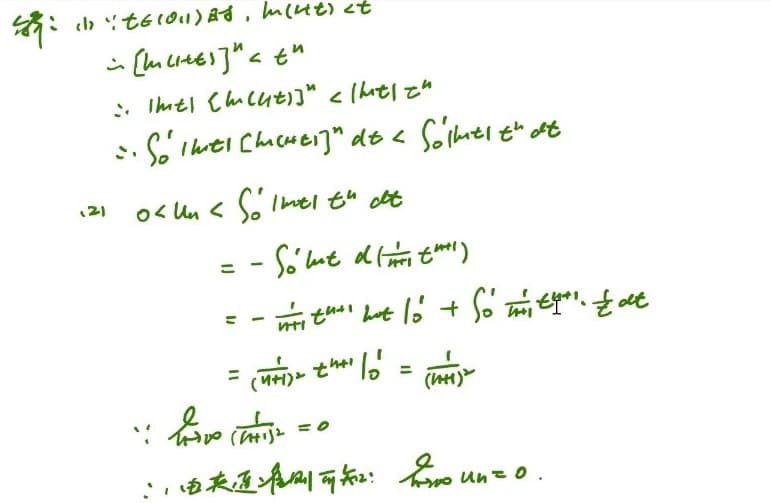 解：(1) ∵ t∈(0,1)时, ln(1+t) < t
∴ [ln(1+t)]ⁿ < tⁿ
∴ |lnt| [ln(1+t)]ⁿ < |lnt| tⁿ
∴ ∫₀¹ |lnt| [ln(1+t)]ⁿ dt < ∫₀¹ |lnt| tⁿ dt
(2) 0 < Uₙ < ∫₀¹ |lnt| tⁿ dt
= - ∫₀¹ lnt d(1/(n+1) tⁿ⁺¹)
= - 1/(n+1) tⁿ⁺¹ lnt |₀¹ + ∫₀¹ 1/(n+1) tⁿ⁺¹ · 1/t dt
= 1/(n+1)² tⁿ⁺¹ |₀¹ = 1/(n+1)²
∵ lim n→∞ 1/(n+1)² = 0
∴ 由夹逼准则可知: lim n→∞ Uₙ = 0.